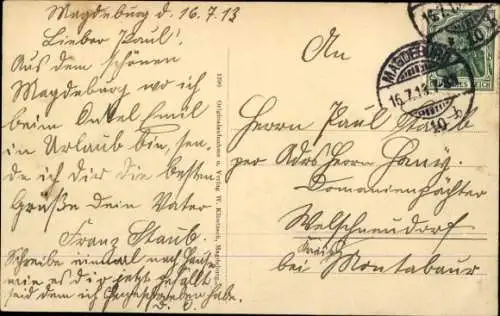 Magdeburg d. 16.7.13
Lieber Paul!
Aus dem schönen
Magdeburg wo ich
beim Onkel Emil
in Urlaub bin, sen,
de ich Dir die besten
Grüße dein Vater
Franz Staub.
Schreibe einmal nach Hause
wie es dir jetzt gefällt
seid dem ich geschrieben habe.
D. O.
1290 Originalaufnahme u. Verlag W. Klautzsch, Magdeburg
An
Herrn Paul Staub
per Adrs Herrn
Domanienpächter
Welschneudorf
Kreis
bei Montabaur
MAGDEBURG
16.7.13
10